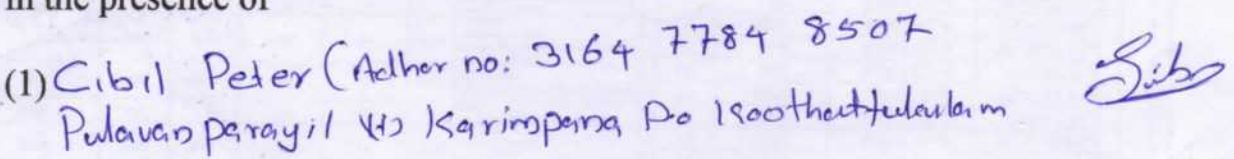 in the presence of
(1) Cibil Peter (Adher no: 3164 7784 8507
Pulavanparayil (H) Karimpana Po Koothattukulam